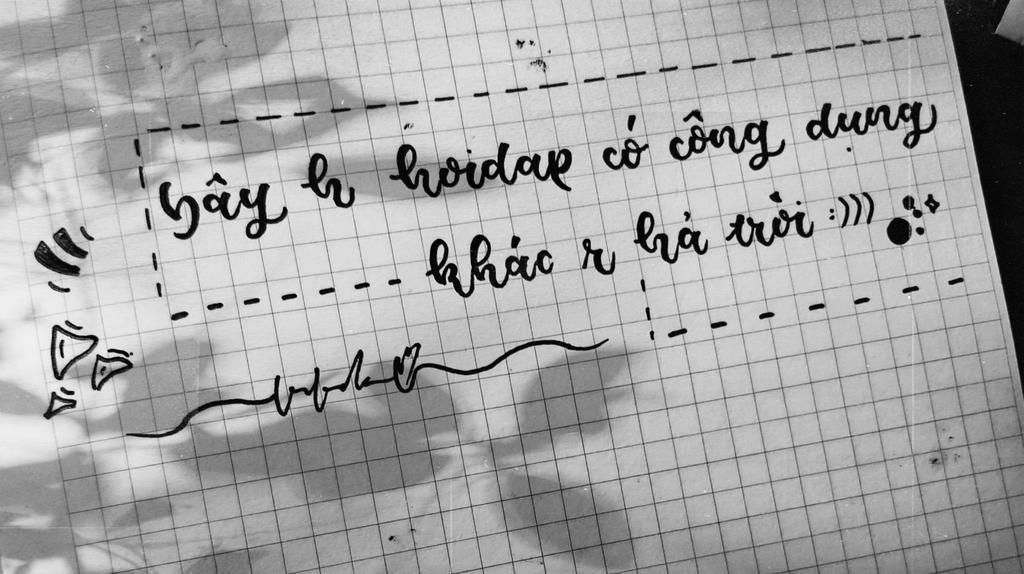 bây h hoidap có công dụng
khác r hả trời :)))